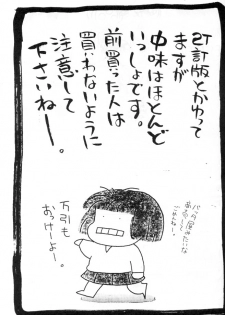 改訂版とかゆって
ますが
中味はほとんど
いっしょです。
前買った人は
買わないように
注意して
下さいねー。
万引も
おっけーよー。
バッタ屋みたいな
ごめんねー。